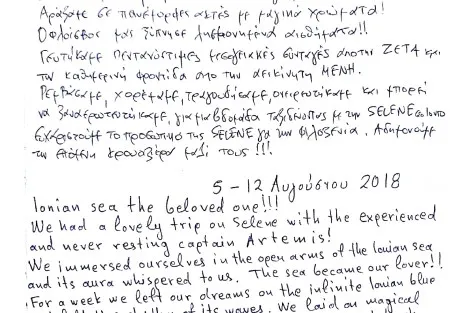 Αράξαμε σε πανέμορφες ακτές με μαγικά χρώματα!
Ο φλοίσβος μας ξύπνησε λησμονημένα αισθήματα!!
Γευτήκαμε πεντανόστιμες μεσογειακές συνταγές από την ΖΕΤΑ και
την καθημερινή φροντίδα από την αεικίνητη ΜΕΝΗ.
Ρεμβάσαμε, χορέψαμε, τραγουδήσαμε, ονειρευτήκαμε και μπορεί
να ξαναερωτευτήκαμε, για μια βδομάδα ταξιδεύοντας με την SELENE στο Ιόνιο
Ευχαριστούμε το προσωπικό της SELENE για την φιλοξενία. Αδημονούμε
την επόμενη κρουαζιέρα μαζί τους!!!
5 - 12 Αυγούστου 2018
Ionian sea the beloved one!!!
We had a lovely trip on Selene with the experienced
and never resting captain Artemis!
We immersed ourselves in the open arms of the Ionian sea
and its aura whispered to us. The sea became our lover!!
For a week we left our dreams on the infinite Ionian blue
of its waves. We laid on magical